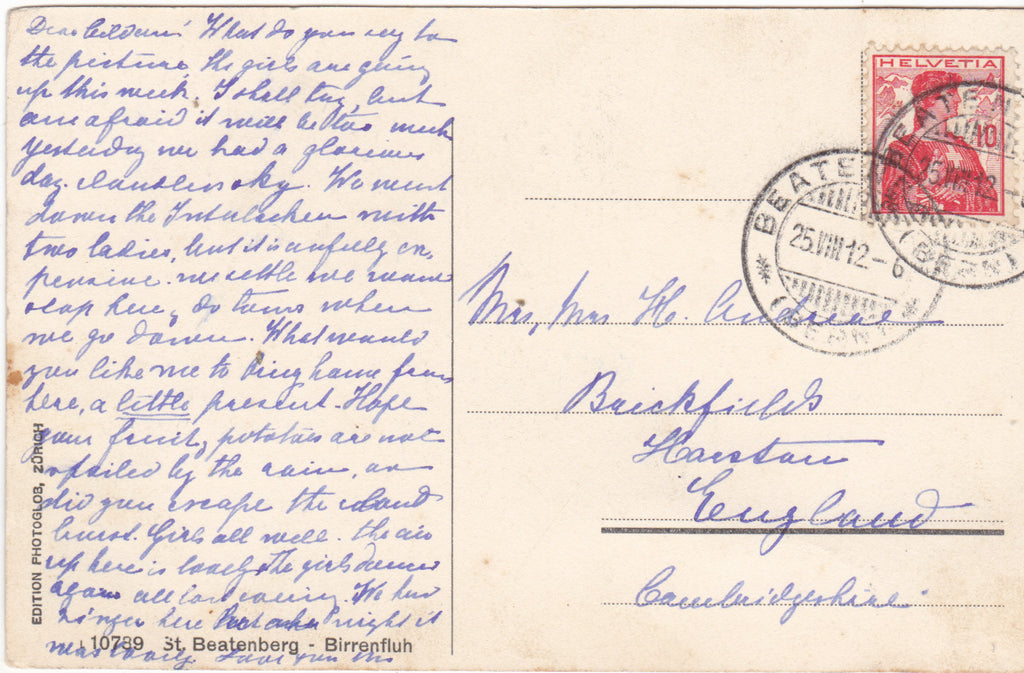 What do you say to
the picture, the girls are going
up this week. I shall try, but
am afraid it will be too much
Yesterday we had a glorious
day. sky. We went
down the Interlacken with
two ladies, but it is awfully ex
pensive. we settle we
here, do when
we go down. What would
you like me to bring home from
here, a little present. Hope
your fruit, potatoes are not
spoiled by the rain, or
did you escape the cloud
burst. Girls all well. the air
up here is lovely, the girls
again all
here night it
was lovely Love from
EDITION PHOTOGLOB, ZÜRICH
10789 St. Beatenberg - Birrenfluh
HELVETIA
10
BEATENB
25.VIII.12
(BERN)
BEATE
25.VIII.12-6
(BERN)
Mrs, Mrs H.
Brickfields
Harston
England
Cambridgeshire